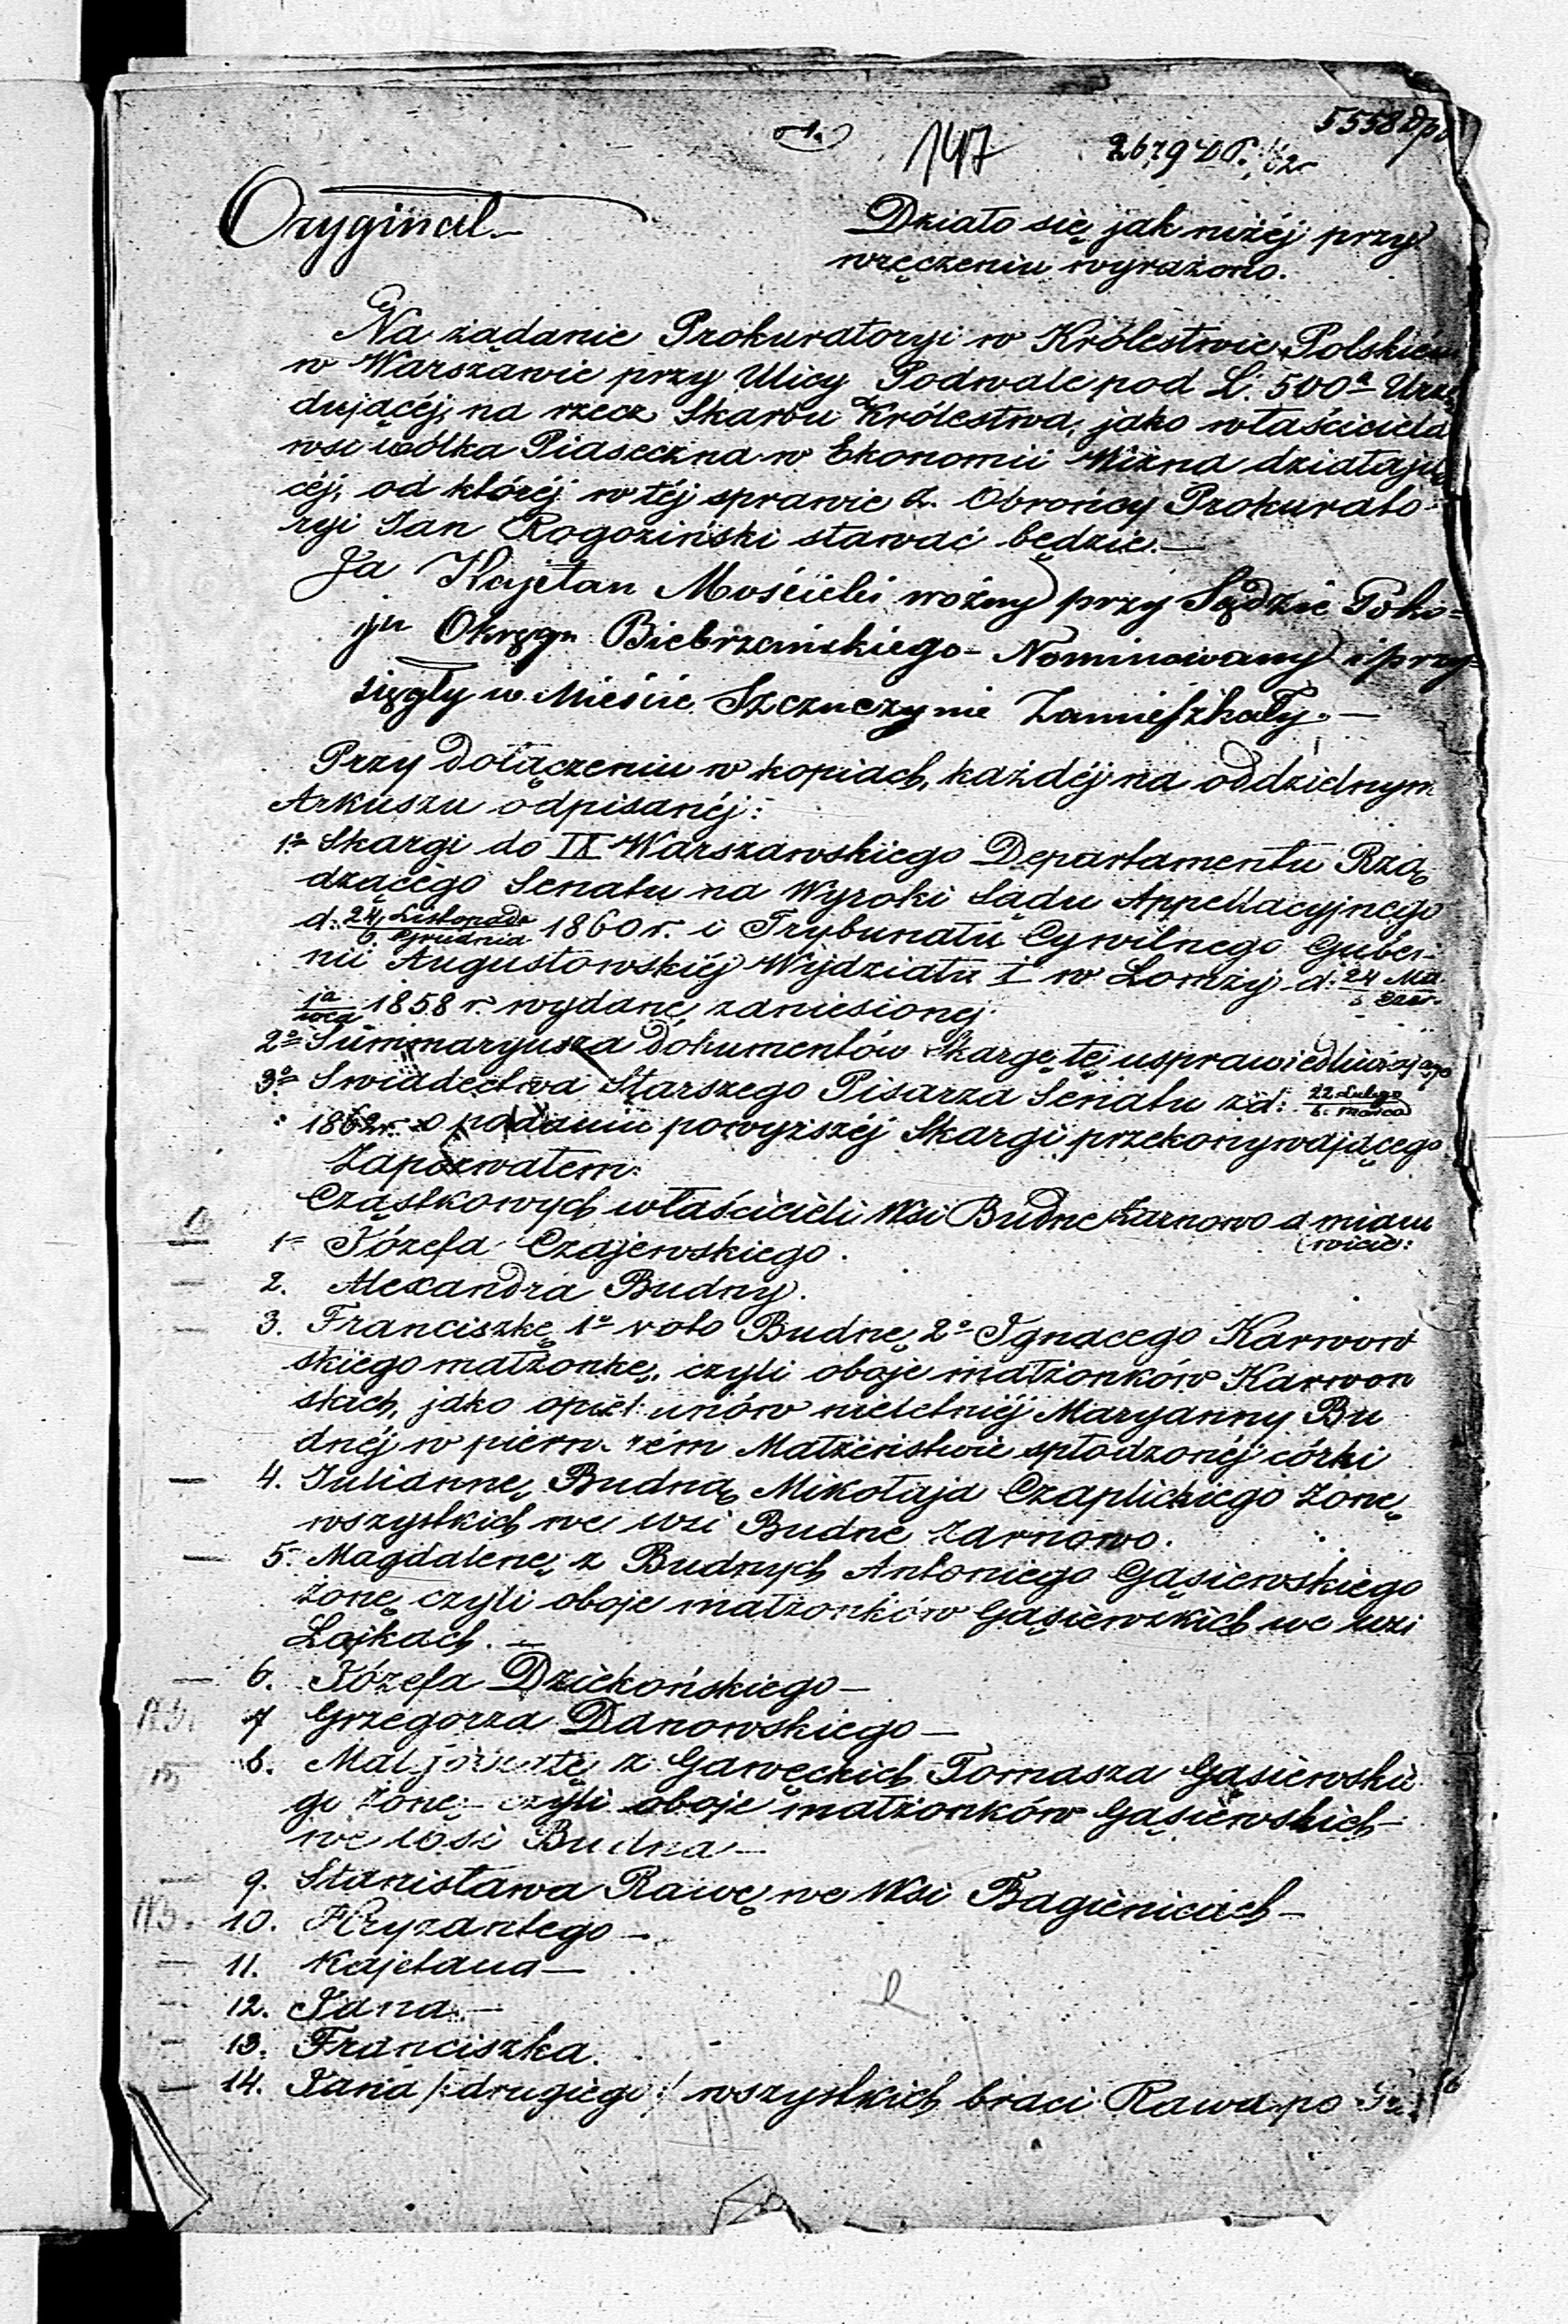 147
5558 Dp
2679 DP.
Oryginał.
Działo się jak niżéj przy
wręczeniu wyrażono.
Na żądanie Prokuratoryi w Królestwie Polskiém
w Warszawie przy Ulicy Podwale pod L. 500a Urzę
dującéj, na rzecz Skarbu Królestwa, jako właściciela
wsi Wólka Piaseczna w Ekonomii Wizna działają
céj, od któréj w téj sprawie A. Obrońcy Prokurato-
ryi Jan Rogoziński stawać będzie.—
Ja Kajetan Mościcki woźny przy Sądzie Poko=
ju Okręgu Biebrzańskiego - Nominowany i przy=
sięgły w Mieście Szczuczynie Zamieszkały.—
Przy dołączeniu w kopiach, każdéj na oddzielnym
Arkuszu odpisanéj:
1o Skargi do IX Warszawskiego Departamentu Rzą
dzącego Senatu na Wyroki Sądu Appellacyjnego
d: 24 Listopada / 6. Grudnia 1860 r. i Trybunału Cywilnego Guber-
nii Augustowskiéj Wydziału I w Łomży d: 24 Ma / 5 Czer-
ja / wca 1858 r. wydane, zaniesionej.
2o Summaryusza dokumentów Skargę tę usprawiedliwiającego
3o Swiadectwa Starszego Pisarza Senatu z d: 22 Lutego / 6. Marca
1862 r. o podaniu powyższéj Skargi przekonywającego
Zapozwałem:
Cząstkowych właścicieli Wsi Budne Żarnowo a miano
(wicie:
1o Józefa Czajewskiego.
2. Alexandra Budny.
3. Franciszkę 1o voto Budnę 2o Ignacego Karwow
skiego małżonkę, czyli oboje małżonków Karwow
skich, jako opiekunów nieletniéj Maryanny Bu
dnéj w pierwszém Małżeństwie spłodzonéj córki
4. Juliannę Budną Mikołaja Czaplickiego żonę
wszystkich we wsi Budne Żarnowo.
5. Magdalenę z Budnych Antoniego Gąsiewskiego
żonę czyli oboje małżonków Gąsiewskich we wsi
Łojkach.—
6. Józefa Dziekońskiego—
7 Grzegorza Danowskiego—
8. Małgorzatę z Gawęckich Tomasza Gąsiewskie
go żonę — czyli oboje małżonków Gąsiewskich—
we wsi Budna—
9. Stanisława Rawę we Wsi Bagienicach—
10. Hryzantego—
11. Kajetana—
12. Jana.—
13. Franciszka.
14. Jana /:drugiego:/ wszystkich braci Rawa po